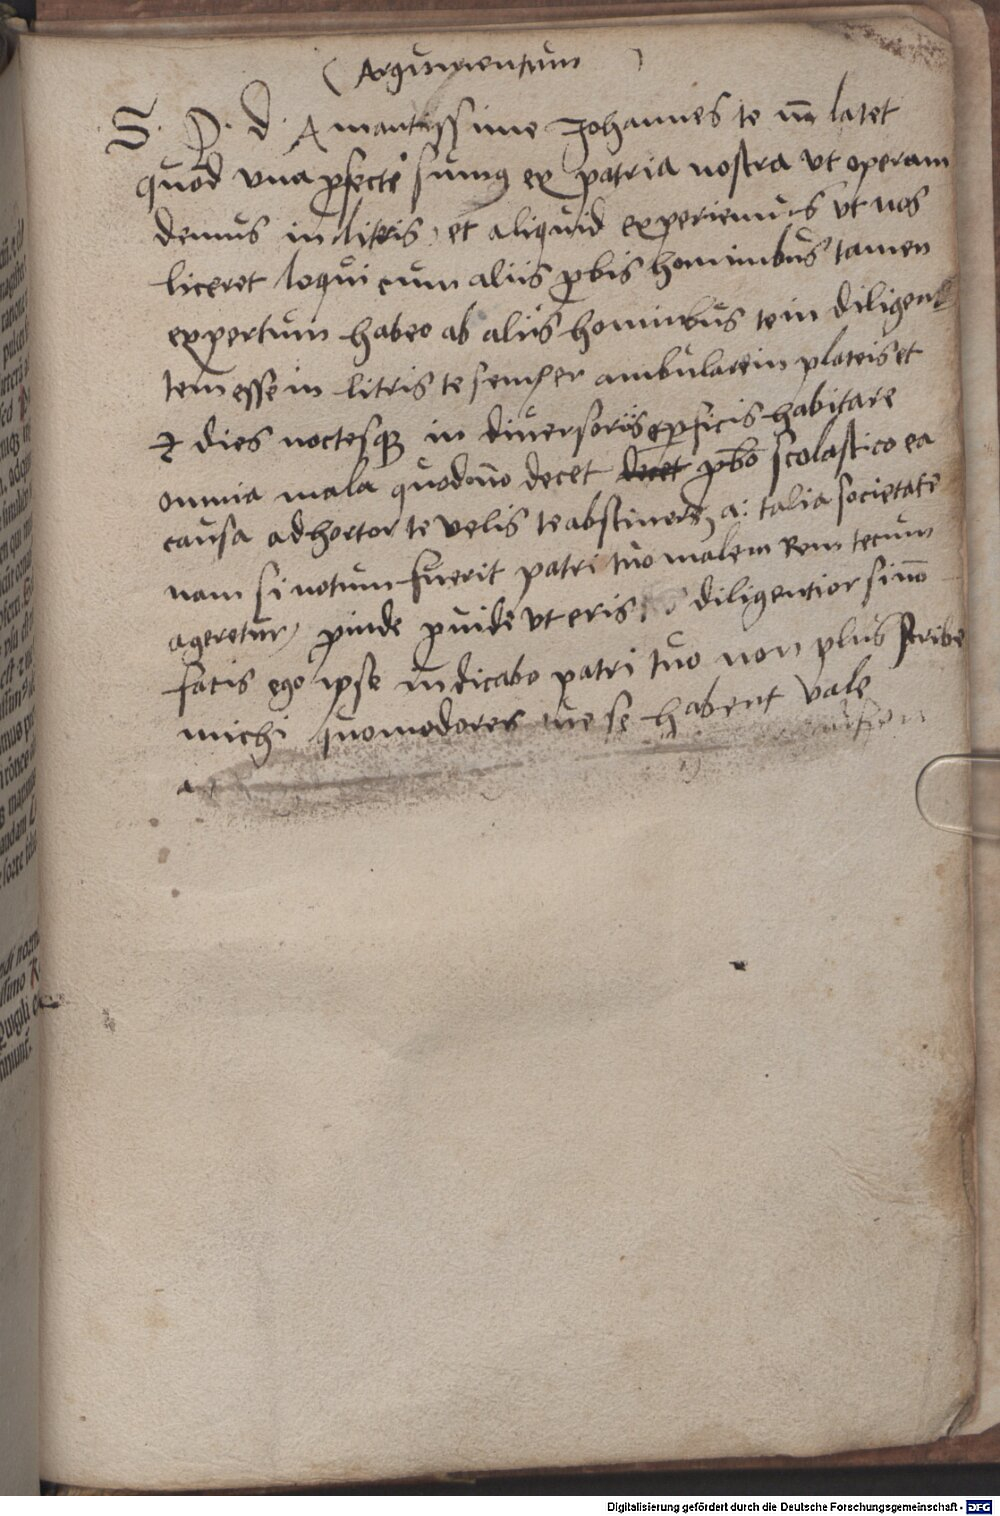 ( Argumentum )
S. P. d. Amantissime Johannes te nō latet
quod una ꝓfecti sumꝰ ex patria nostra ut operam
demus in literis et aliquid experiemurs ut nos
liceret loqui cum aliis ꝓbis hominibus tamen
expertum habeo ab aliis hominibus te in diligen
tem esse in litris te semper ambulare in plateis et
⁊ dies noctesqꝫ in diversoriis habitare
omnia mala quod nō decet decet ꝓbo scolastico ea
causa adhortor te velis te abstinere a: talia societate
nam si notum fuerit patri tuo malem Rem tecum
ageretur, ꝓinde ꝓvide ut eris diligentior sinō
facis ego ipse indicabo patri tuo non plus scribe
michi quomodo res tue se habent vale
Digitalisierung gefördert durch die Deutsche Forschungsgemeinschaft - DFG